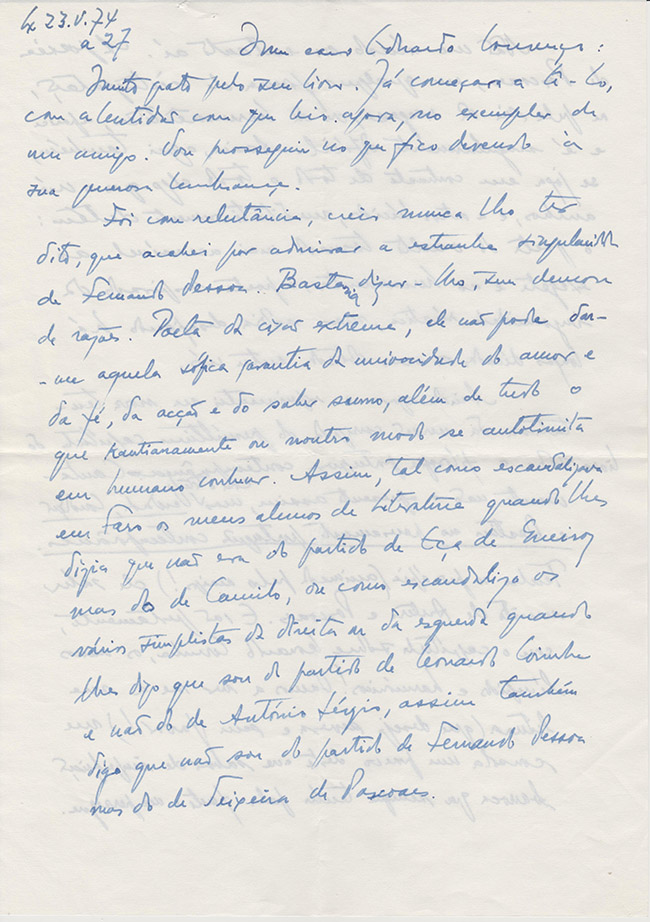 Lx 23.V.74
a 27
Meu caro Eduardo Lourenço:
Muito grato pelo seu livro. Já começara a lê-lo,
com a lentidão com que leio agora, no exemplar de
um amigo. Vou prosseguir no que fico devendo à
sua generosa lembrança.
Foi com relutância, creio nunca lho ter
dito, que acabei por admirar a estranha singularidade
de Fernando Pessoa. Bastaria dizer-lho, sem demora
de razões. Poeta da cisão extrema, ele não podia dar-
-me aquela sófica garantia da univocidade do amor e
da fé, da acção e do saber sumo, além de tudo o
que kantianamente ou noutro modo se autolimita
em humano conhecer. Assim, tal como escandalizava
em Faro os meus alunos de Literatura quando lhes
dizia que não era do partido de Eça de Queiroz
mas do de Camilo, ou como escandalizo os
vários simplistas da direita ou da esquerda quando
lhes digo que sou do partido de Leonardo Coimbra
e não do de António Sérgio, assim também
digo que não sou do partido de Fernando Pessoa
mas do de Teixeira de Pascoaes.